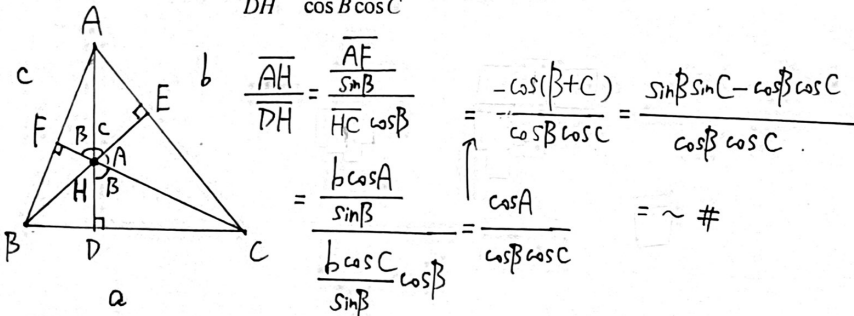 DH cos B cos C
A
c b E
F B C A H B
B D C
a
\frac{\overline{AH}}{\overline{DH}} = \frac{\frac{\overline{AF}}{sinB}}{\overline{HC} cosB}
= \frac{\frac{bcosA}{sinB}}{\frac{bcosC}{sinB} cosB} = \frac{cosA}{cosBcosC}
= \frac{-cos(B+C)}{cosBcosC} = \frac{sinBsinC-cosBcosC}{cosBcosC}.
= ~ #